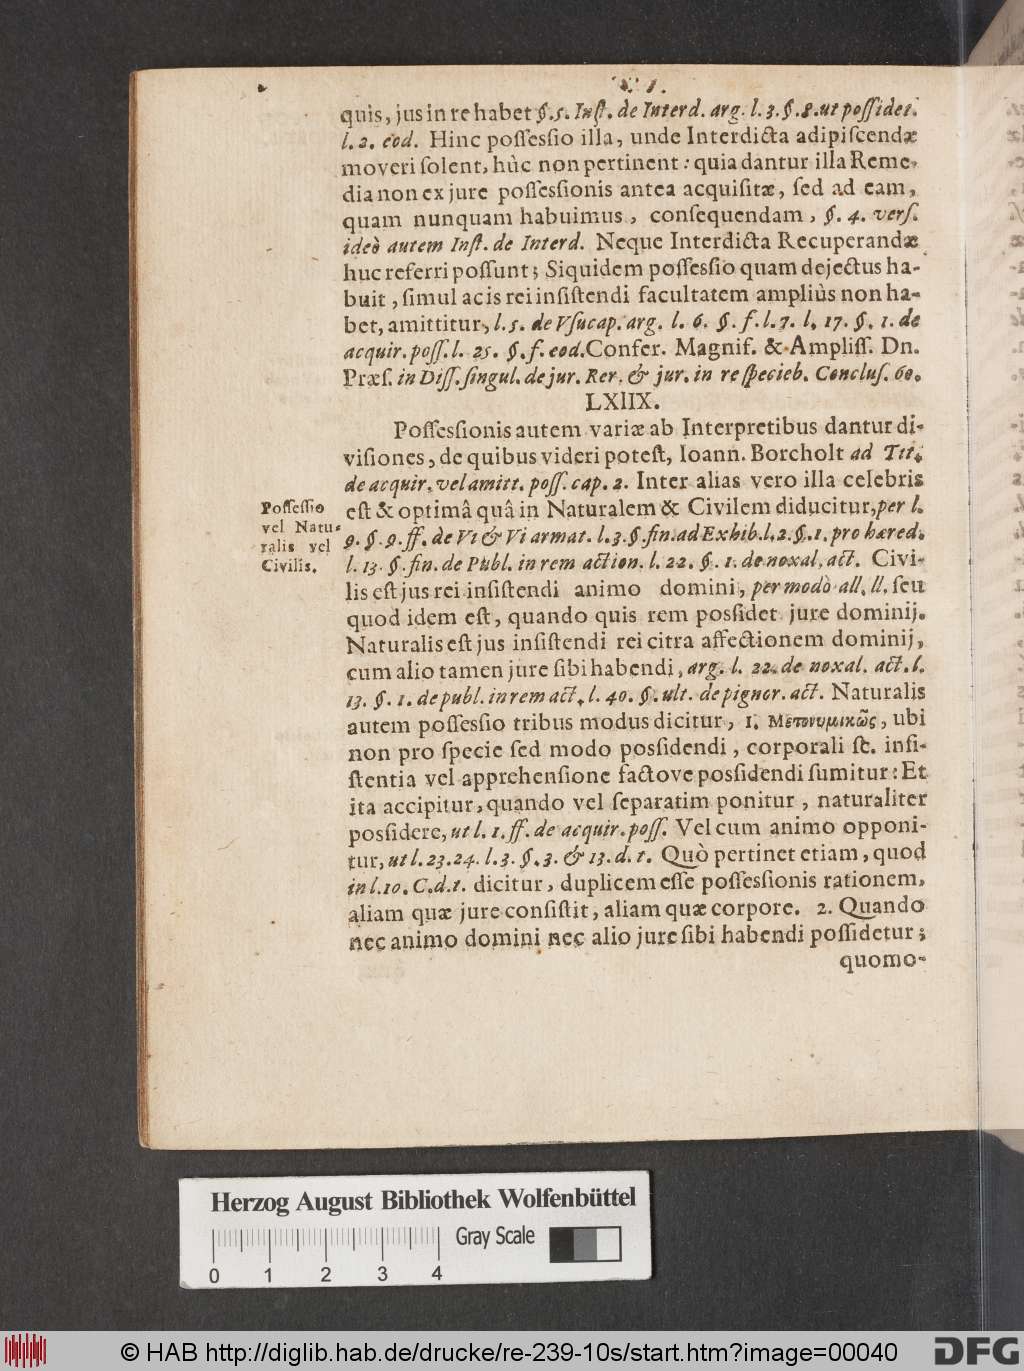 quis, jus in re habet §. 5. Inſt. de Interd. arg. l. 3. §. 8. ut poſſidet.
l. 2. eod. Hinc poſſeſsio illa, unde Interdicta adipiſcendæ
moveri ſolent, hùc non pertinent: quia dantur illa Reme-
dia non ex jure poſſeſsionis antea acquiſitæ, ſed ad eam,
quam nunquam habuimus, conſequendam, §. 4. verſ.
ideò autem Inſt. de Interd. Neque Interdicta Recuperandæ
huc referri poſſunt; Siquidem poſſeſsio quam dejectus ha-
buit, ſimul ac is rei inſiſtendi facultatem ampliùs non ha-
bet, amittitur, l. 5. de Vſucap. arg. l. 6. §. f. l. 7. l. 17. §. 1. de
acquir. poſſ. l. 25. §. f. eod. Confer. Magnif. & Ampliſſ. Dn.
Præſ. in Diſſ. ſingul. de jur. Rer. & jur. in re ſpecieb. Concluſ. 60.
LXIIX.
Poſſeſsionis autem variæ ab Interpretibus dantur di-
viſiones, de quibus videri poteſt, Ioann. Borcholt ad Tit.
de acquir. vel amitt. poſſ. cap. 2. Inter alias vero illa celebris
eſt & optimâ quâ in Naturalem & Civilem diducitur, per l.
9. §. 9. ff. de Vi & Vi armat. l. 3. §. fin. ad Exhib. l. 2. §. 1. pro hæred.
l. 13. §. fin. de Publ. in rem action. l. 22. §. 1. de noxal. act. Civi-
lis eſt jus rei inſiſtendi animo domini, per modò all. ll. ſeu
quod idem eſt, quando quis rem poſsidet jure dominij.
Naturalis eſt jus inſiſtendi rei citra affectionem dominij,
cum alio tamen jure ſibi habendi, arg. l. 22. de noxal. act. l.
13. §. 1. de publ. in rem act. l. 40. §. ult. de pignor. act. Naturalis
autem poſſeſsio tribus modus dicitur, 1. Μετονυμικῶς, ubi
non pro ſpecie ſed modo poſsidendi, corporali ſc. inſi-
ſtentia vel apprehenſione factove poſsidendi ſumitur: Et
ita accipitur, quando vel ſeparatim ponitur, naturaliter
poſsidere, ut l. 1. ff. de acquir. poſſ. Vel cum animo opponi-
tur, ut l. 23. 24. l. 3. §. 3. & 13. d. t. Quò pertinet etiam, quod
in l. 10. C. d. t. dicitur, duplicem eſſe poſſeſsionis rationem,
aliam quæ jure conſiſtit, aliam quæ corpore. 2. Quando
nec animo domini nec alio jure ſibi habendi poſſidetur;
quomo-
Poſſeſsio
vel Natu-
ralis vel
Civilis.
Herzog August Bibliothek Wolfenbüttel
Gray Scale
0 1 2 3 4
© HAB http://diglib.hab.de/drucke/re-239-10s/start.htm?image=00040
DFG